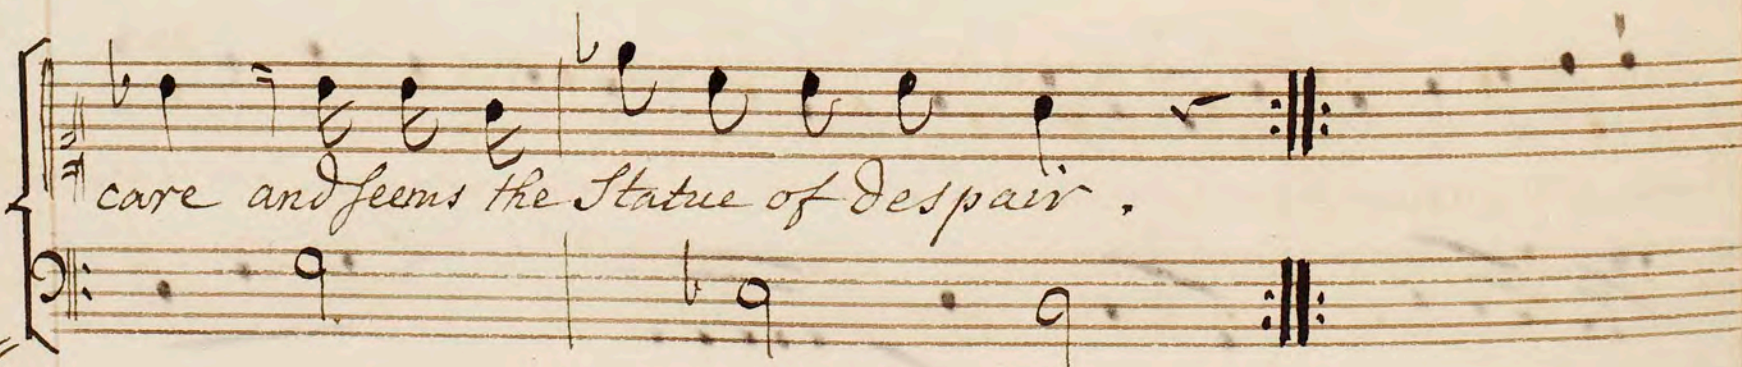 care and seems the Statue of Despair.